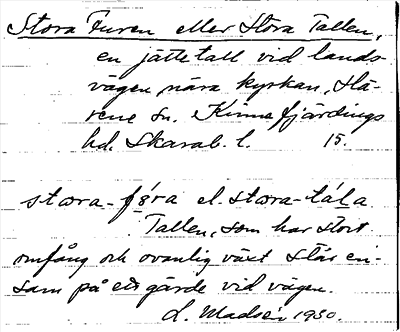 Stora Furen eller Stora Tallen,
en jättetall vid lands-
vägen nära kyrkan, Hä-
rene sn. Kinnefjärdings
hd. Skarab. l. 15.
stæra-føra el. stæra-tála
Tallen, som har stort
omfång och ovanlig växt står en-
sam på ett gärde vid vägen.
L. Madsén 1930.